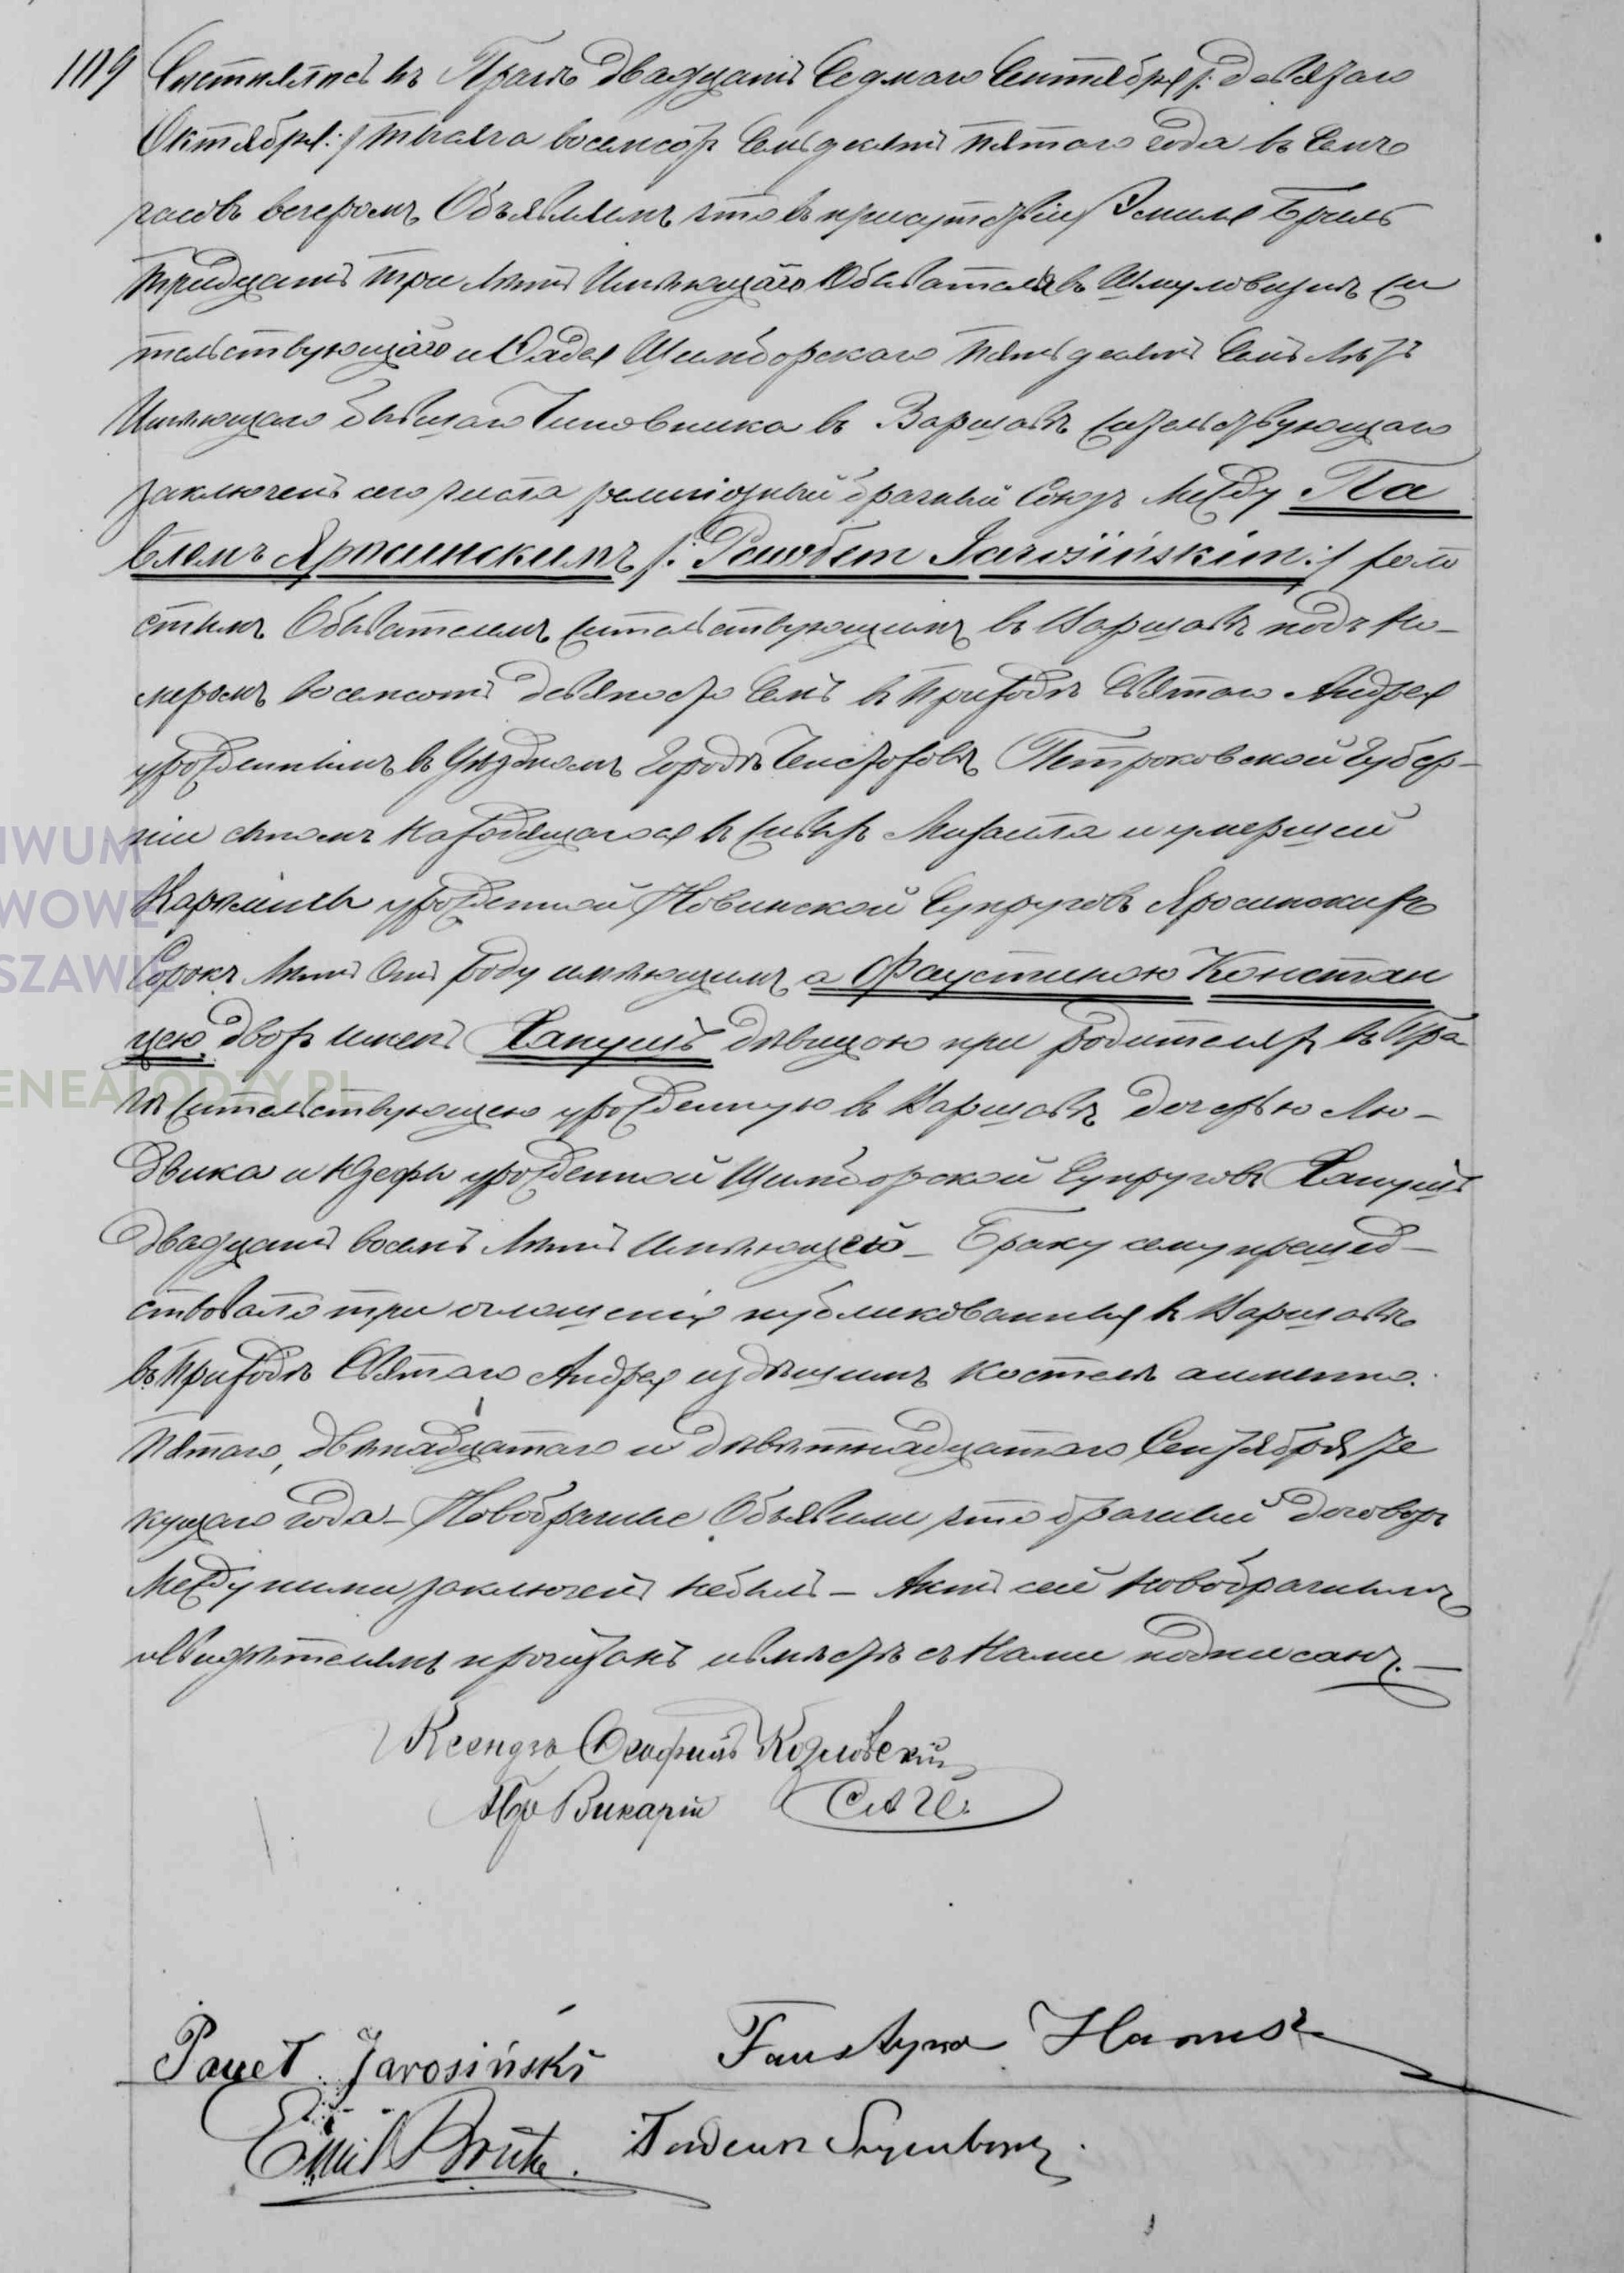 109 Состоялось въ Прагѣ двадцать седмаго Сентября /: девятаго
Октября :/ тысяча восемсотъ семьдесятъ пятаго года въ семъ
часовъ вечеромъ Объявляемъ что въ присутствіи Эмиля
тридцать три лѣтъ Имѣющаго Обывателя въ Шмуловизнѣ жи
тельствующаго и Фадея Шимборскаго пятьдесятъ семь лѣтъ
Имѣющаго бывшаго Чиновника въ Варшавѣ жительствующаго
заключенъ сего числа религіозный брачный союзъ между Па
вломъ Яросинскимъ /: Pawłem Jarosińskim :/ холо
стымъ Обывателемъ жительствующимъ въ Варшавѣ подъ Но-
меромъ восемсотъ девяносто семь въ приходѣ Святаго Андрея
урожденнымъ въ Уѣздномъ Городѣ Ченстоховѣ Петроковской Губер-
ніи сыномъ находящагося въ Михаила и умершей
урожденной Новинской Супруговъ Яросинскихъ
Сорокъ лѣтъ отъ роду имѣющимъ а Фаустиною Констан
цею двохъ именъ Ханушъ дѣвицою при родителяхъ въ Пра
гѣ жительствующею урожденную въ Варшавѣ дочерью Лю-
двика и Юзефы урожденной Шимборской Супруговъ Ханушъ
двадцать восемь лѣтъ Имѣющею - Браку сему предшед-
ствовало три оглашенія публикованныя въ Варшавѣ
въ приходѣ Святаго Андрея и здѣшнемъ костелѣ аименно:
пятаго, двѣнадцатаго и девятнадцатаго Сентября те
кущаго года - Новобрачные Объявили что брачный договоръ
Между ними заключенъ небылъ - Актъ сей новобрачнымъ
и свидѣтелямъ прочитанъ и вмѣстѣ съ Нами подписанъ. -
Ксендзъ Козловскій
Викарій С А Г.
Paweł Jarosiński Faustyna Hanusz
Emil Tadeusz Szymborski